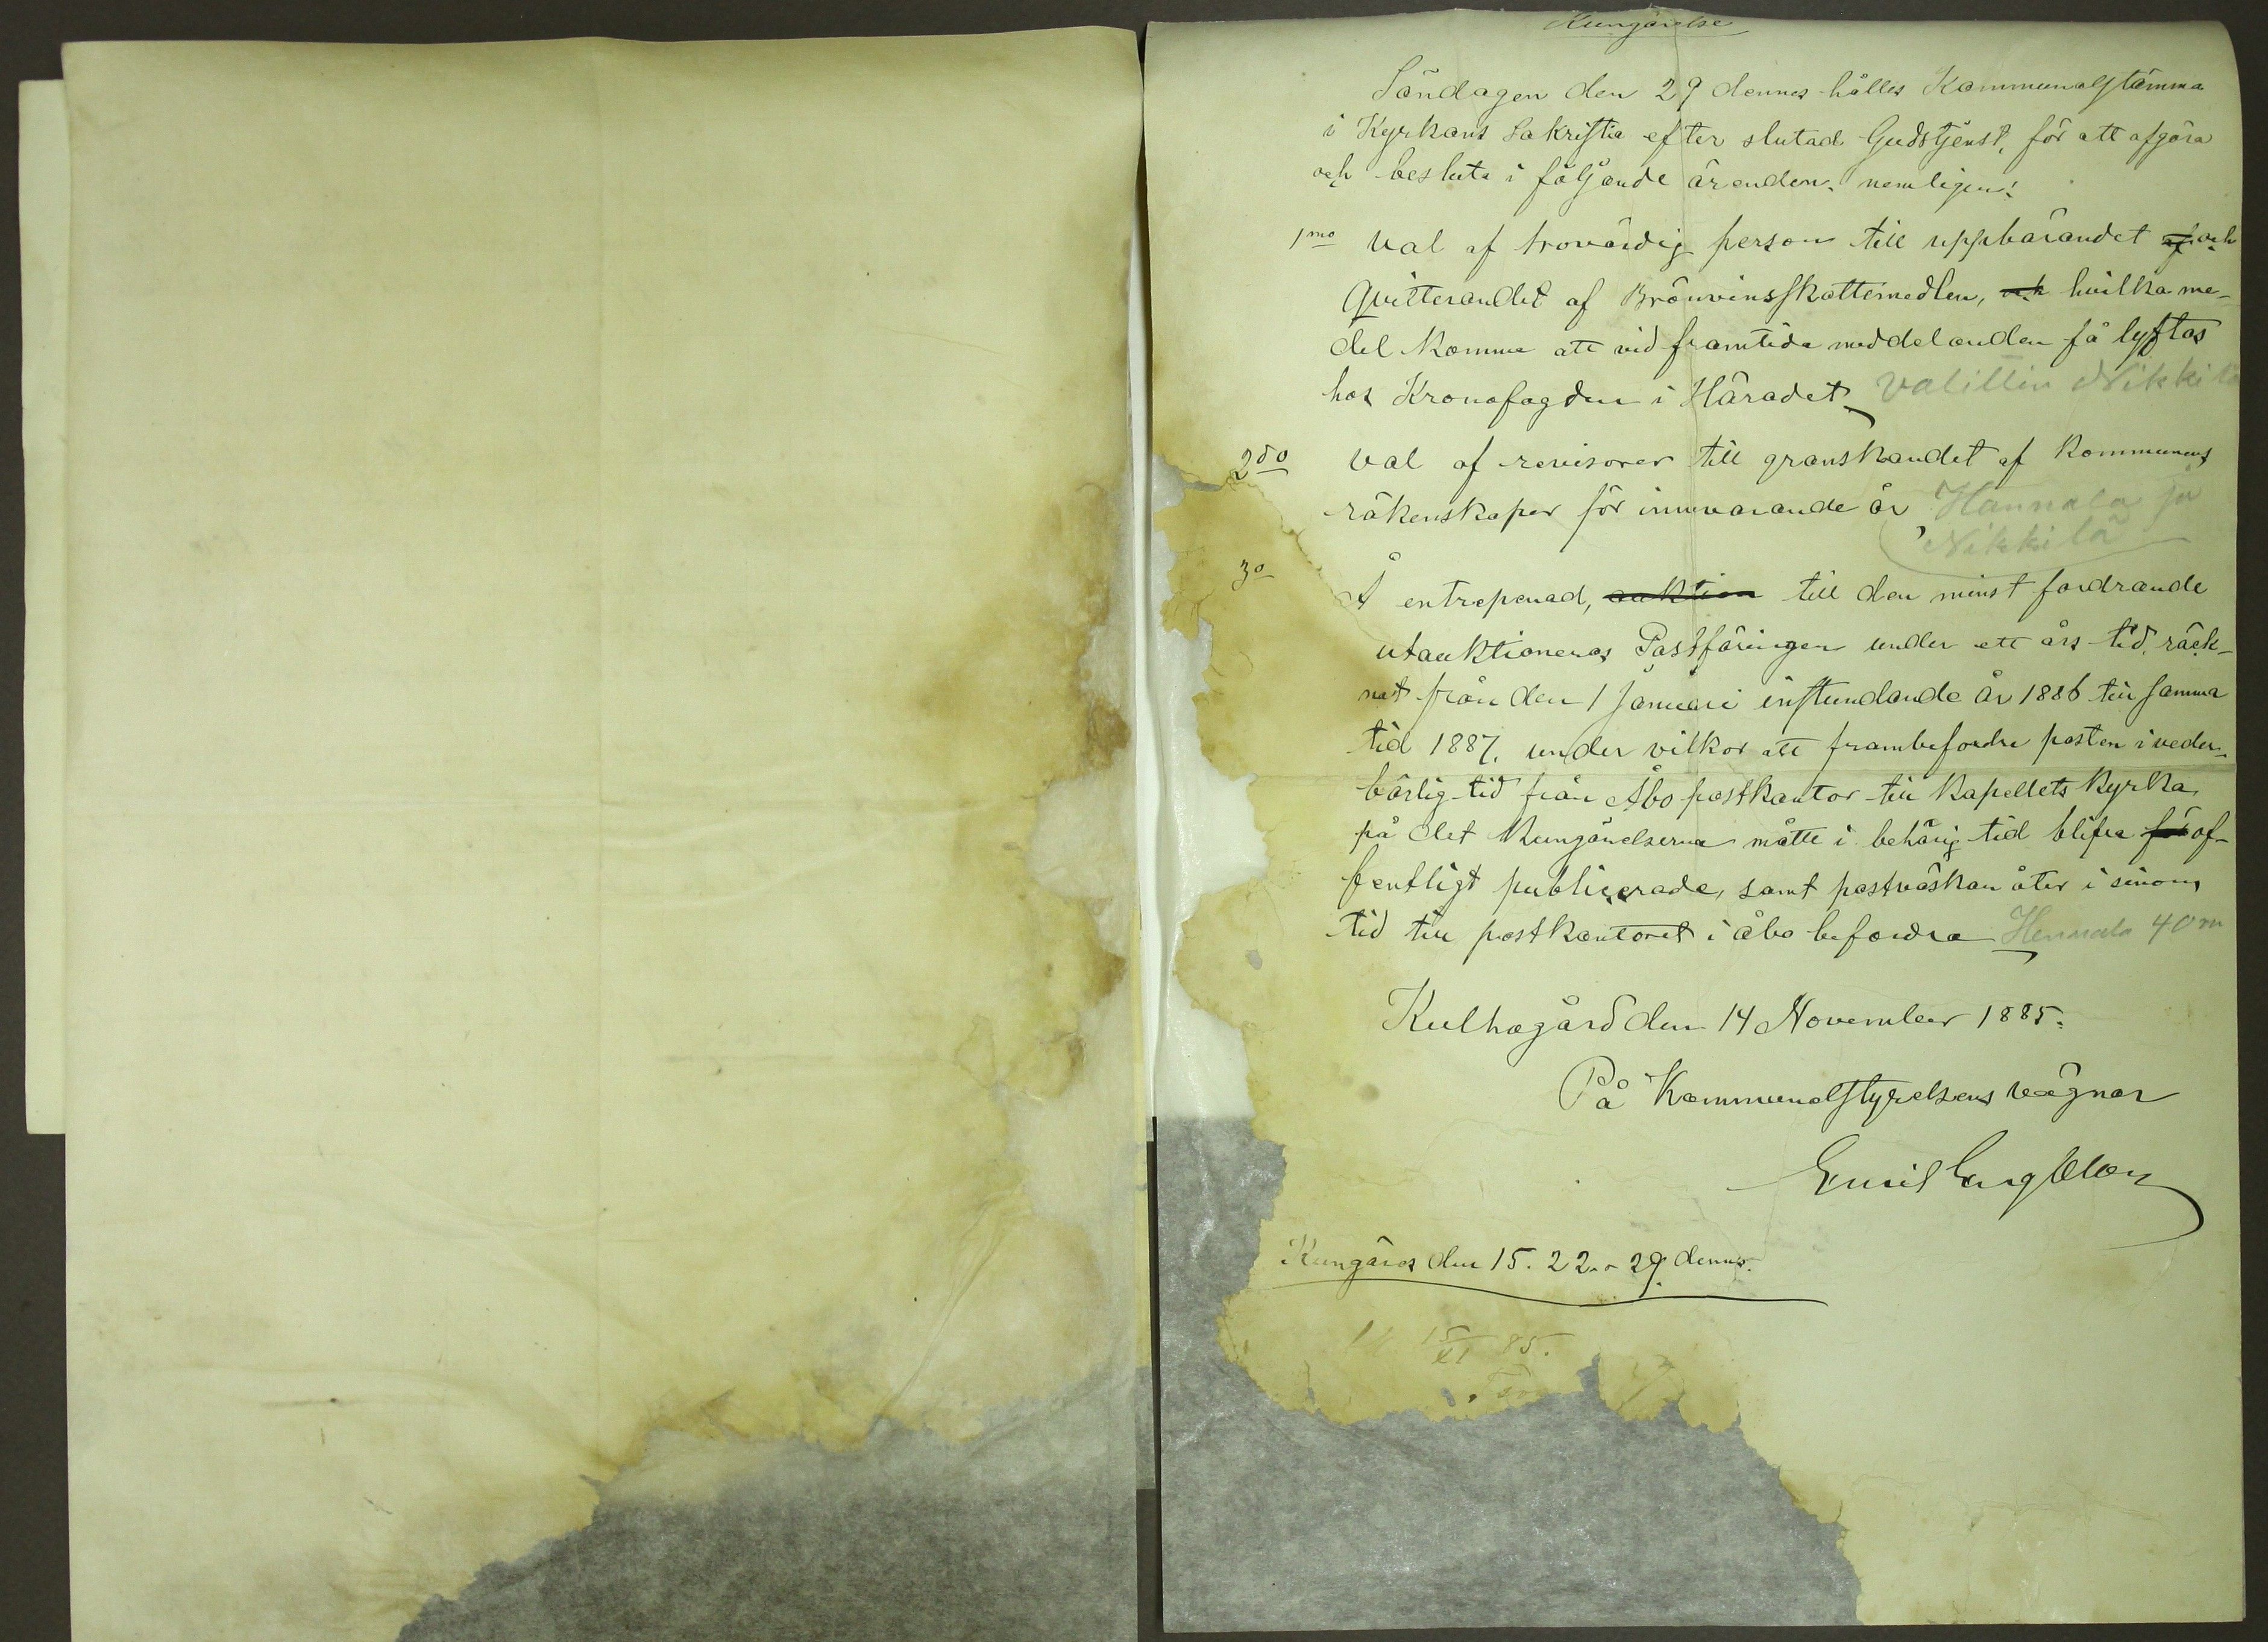 Kungörelse
Söndagen den 29 dennes hålles Kommunalstämma
i Kyrkans Sakristia efter slutad Gudstjenst, för att afgöra
och besluta i följande ärenden. nemligen:
1mo Val af trovärdig person till uppbärandet af och
Qvitterandet af Brönvinsskattemedlen, och hvilka me-
del komma att vid framtida meddelanden få lyftas
hos Kronofogden i Häradet Valittin Nikkilä
2do Val af revisorer till granskandet af Kommunens
räkenskaper för innevarande år Hannala ja
Nikkilä
3o Å entreprenad, auktion till den minst fordrande
utauktioneras Postföringen under ett års tid, räck-
nat från den 1 Januari instundande År 1886 till samma
tid 1887. under vilkor att frambefordra posten i veder-
börlig tid från Åbo postkontor till Kapellets Kyrka
på det Kungörelserna måtte i behörig tid blifva för of-
fentligt publicerade, samt postväskan åter i sinom
tid till postkontoret i Åbo befordra Hannala 40 m
Kulhogård den 14 November 1885.
På Kommunalstyrelsens vägnar
Emil
Kungöres den 15. 22. o 29 dennes.
15/XI 85.